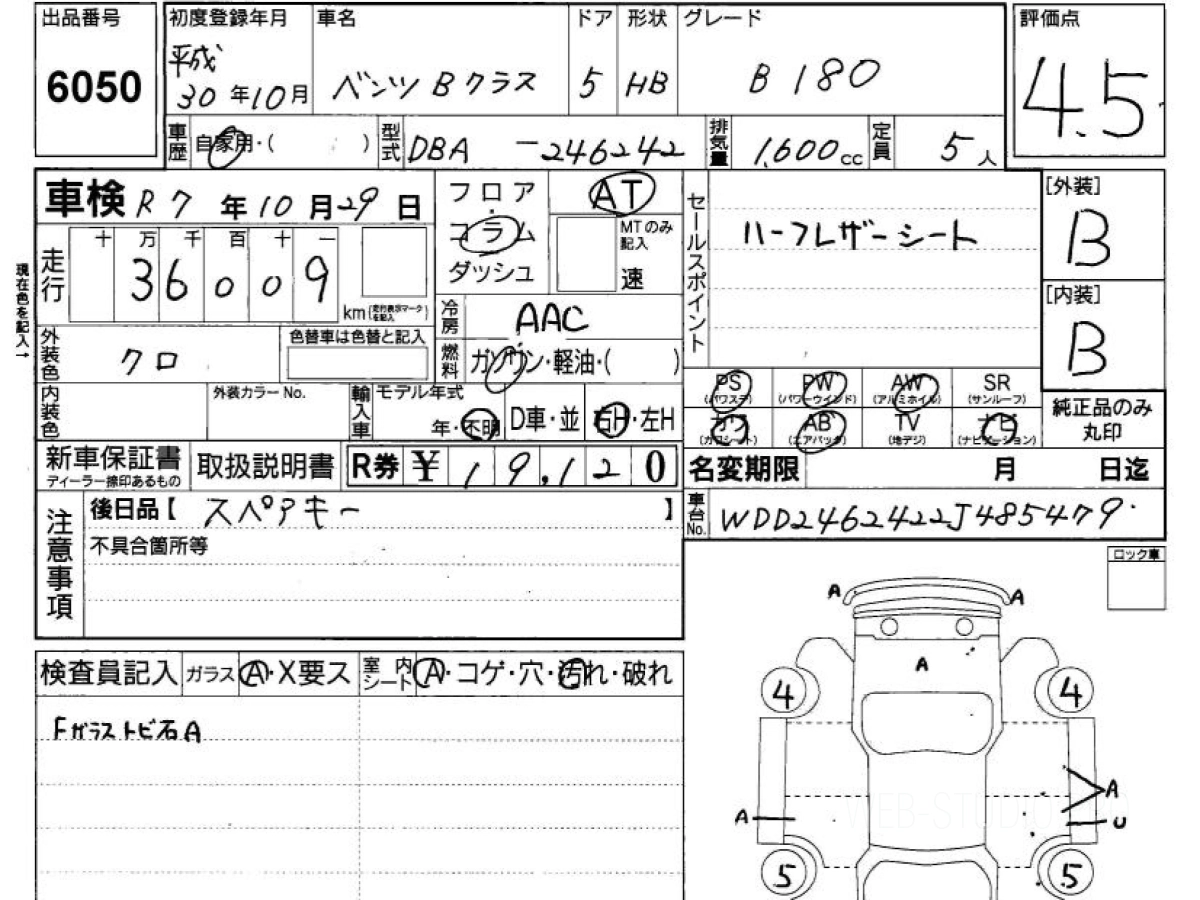 出品番号
6050
初度登録年月
平成
30年10月
車名
ベンツ Bクラス
ドア
5
形状
HB
グレード
B 180
評価点
4.5
車歴
自家用・( )
型式
DBA -246242
排気量
1,600cc
定員
5人
車検 R7年10月29日
フロア
コラム
ダッシュ
AT
MTのみ
記入
速
セールスポイント
ハーフレザーシート
[外装]
B
[内装]
B
純正品のみ
丸印
現在色を記入→
走行
十 万 千 百 十 一
3 6 0 0 9
km(走行表示マークを記入)
冷房
AAC
燃料
ガソリン・軽油・( )
外装色
クロ
色替車は色替と記入
内装色
外装カラーNo.
輸入車
モデル年式
年・不明
D車・並
右H・左H
PS
(パワステ)
PW
(パワーウインド)
AW
(アルミホイル)
SR
(サンルーフ)
カワ
(カワシート)
AB
(エアバック)
TV
(地デジ)
ナビ
(ナビゲーション)
新車保証書
ディーラー捺印あるもの
取扱説明書
R券 ¥ 19,120
名変期限 月 日迄
車台No.
WDD2462422J485479
注意事項
後日品【 スペアキー 】
不具合箇所等
ロック車
検査員記入
ガラス
A・X要ス
室内シート
A・コゲ・穴・汚れ・破れ
Fガラストビ石A
A
A
A
4
4
A
A
U
5
5
WEB-STUDIO